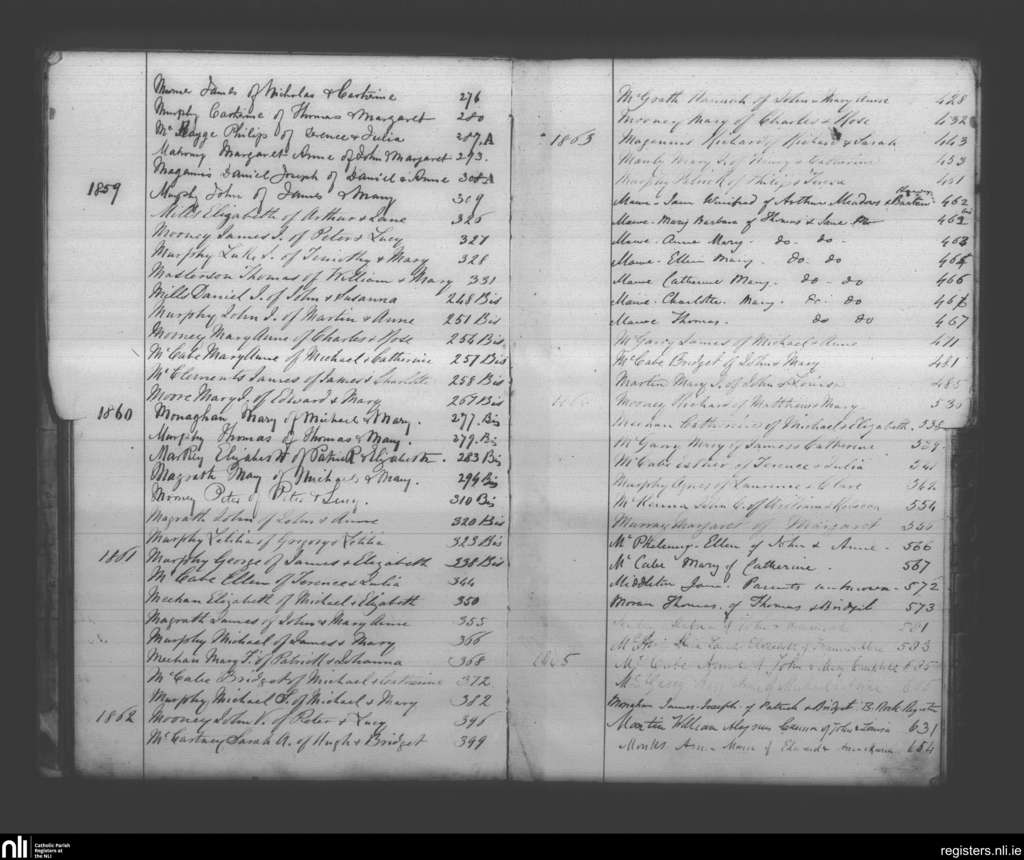 Murphy James of Nicholas & Catherine 276
Murphy Catherine of Thomas & Margaret 280
Philip of Terence & Julia 287.A
Mahony Margaret Anne of John & Margaret 293.
Magennis Daniel Joseph of Daniel & Anne 308A
1859 Murphy John of James & Mary 309
Mills Elizabeth of Arthur & Jane 326
Mooney James J. of Peter & Lucy 327
Murphy Luke J. of Timothy & Mary 328
Masterson Thomas of William & Mary 331
Mills Daniel J. of John & Susanna 248 Bis
Murphy John J. of Martin & Anne 251 Bis
Mooney Mary Anne of Charles & Rose 254 Bis
McCabe Mary Anne of Michael & Catherine 257 Bis
McClements James of James & Charlotte 258 Bis
Moore Mary J. of Edward & Mary 267 Bis
1860 Monaghan Mary of Michael & Mary. 277 Bis
Murphy Thomas of Thomas & Mary. 279. Bis
Markey Elizabeth of Patrick & Elizabeth. 283 Bis
Magrath May of Michael & Mary. 294 Bis
Mooney Peter of Peter & Lucy. 310 Bis
Magrath John of John & Anne 320 Bis
Murphy Letitia of Gregory & Letitia 323 Bis
1861 Murphy George of James & Elizabeth 338 Bis
McCabe Ellen of Terence & Julia 344
Meehan Elizabeth of Michael & Elizabeth 350
Magrath James of John & Mary Anne 355
Murphy Michael of James & Mary 366
Meehan Mary F. of Patrick & Johanna 368
McCabe Bridget of Michael & Catherine 372
Murphy Michael F. of Michael & Mary 382
1862 Mooney John P. of Peter & Lucy 396
McCartney Sarah A. of Hugh & Bridget 399
McGrath Hannah of John & Mary Anne 428
Mooney Mary of Charles & Rose 432
1863 Magennis Richard of Richard & Sarah 443
Manly Mary J. of Henry & Catherine 453
Murphy Patrick of Philip & Teresa 461
Mawe Jane Winifred of Arthur Meadows & 462
Mawe Mary Barbara of Thomas & Jane 462
Mawe Anne Mary do do 463
Mawe Ellen Mary. do. do 465
Mawe Catherine Mary. do - do 466
Mawe Charlotte Mary do. do 467
Mawe Thomas. do do 467
McGarry James of Michael & Anne 471
McCabe Bridget of John & Mary 481
Martin Mary J. of John & Louisa 485
Mooney Richard of Matthew & Mary 530
Meehan Catherine of Michael & Elizabeth 538
McGarry Mary of James & Catherine 539
McCabe Esther of Terence & Julia 541
Murphy Agnes of Laurence & Clare 542
McKenna John C. of William & 554
Murray Margaret of Margaret 560
McPhelemy Ellen of John & Anne. 566
McCabe Mary of Catherine. 567
Middleton Jane. Parents unknown. 572
Moran Thomas of Thomas & Bridget 573
581
593
1865 McCabe Anne of John & Mary
McGarry
Monahan James Joseph of Patrick & Bridget
Martin William Aloysius of John & Louisa 631
Monks Anna Maria of Edward & 654
nli Catholic Parish
Registers at
the NLI
registers.nli.ie